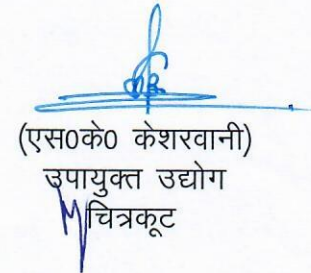 (एस0के0 केशरवानी)
उपायुक्त उद्योग
चित्रकूट